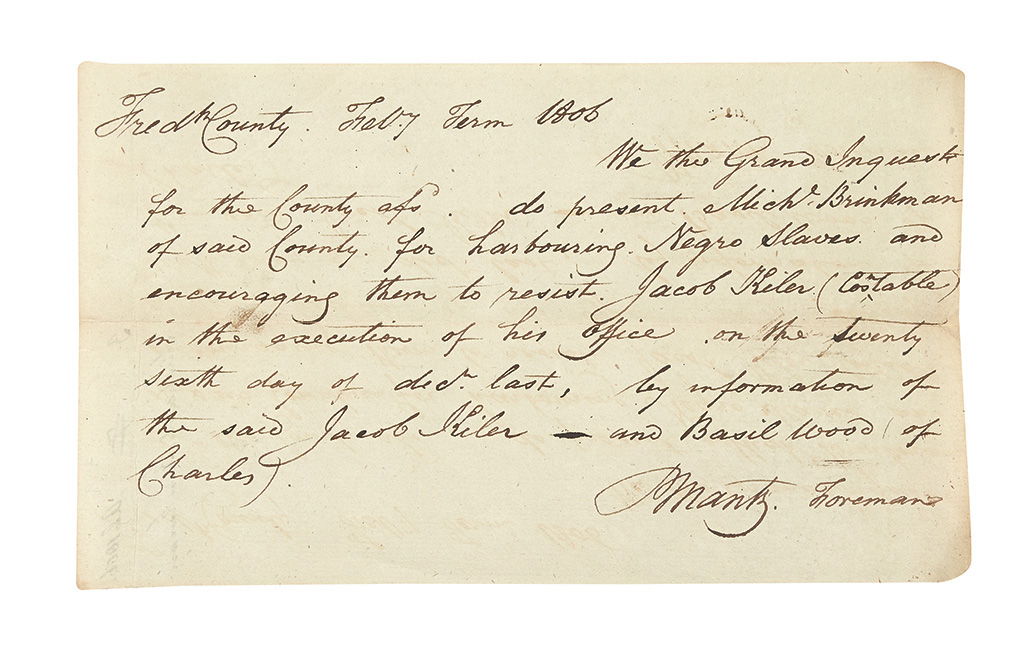 Fredk County. Feby Term 1806
We the Grand Inquest
for the County afsd. do present. Michl. Brinkman
of said County. for harbouring. Negro Slaves. and
encouraging them to resist. Jacob Kiler (Constable)
in the execution of his office. on the twenty
sixth day of decr. last, by information of
the said Jacob Kiler — and Basil Wood (of
Charles).
Mantz. Foreman